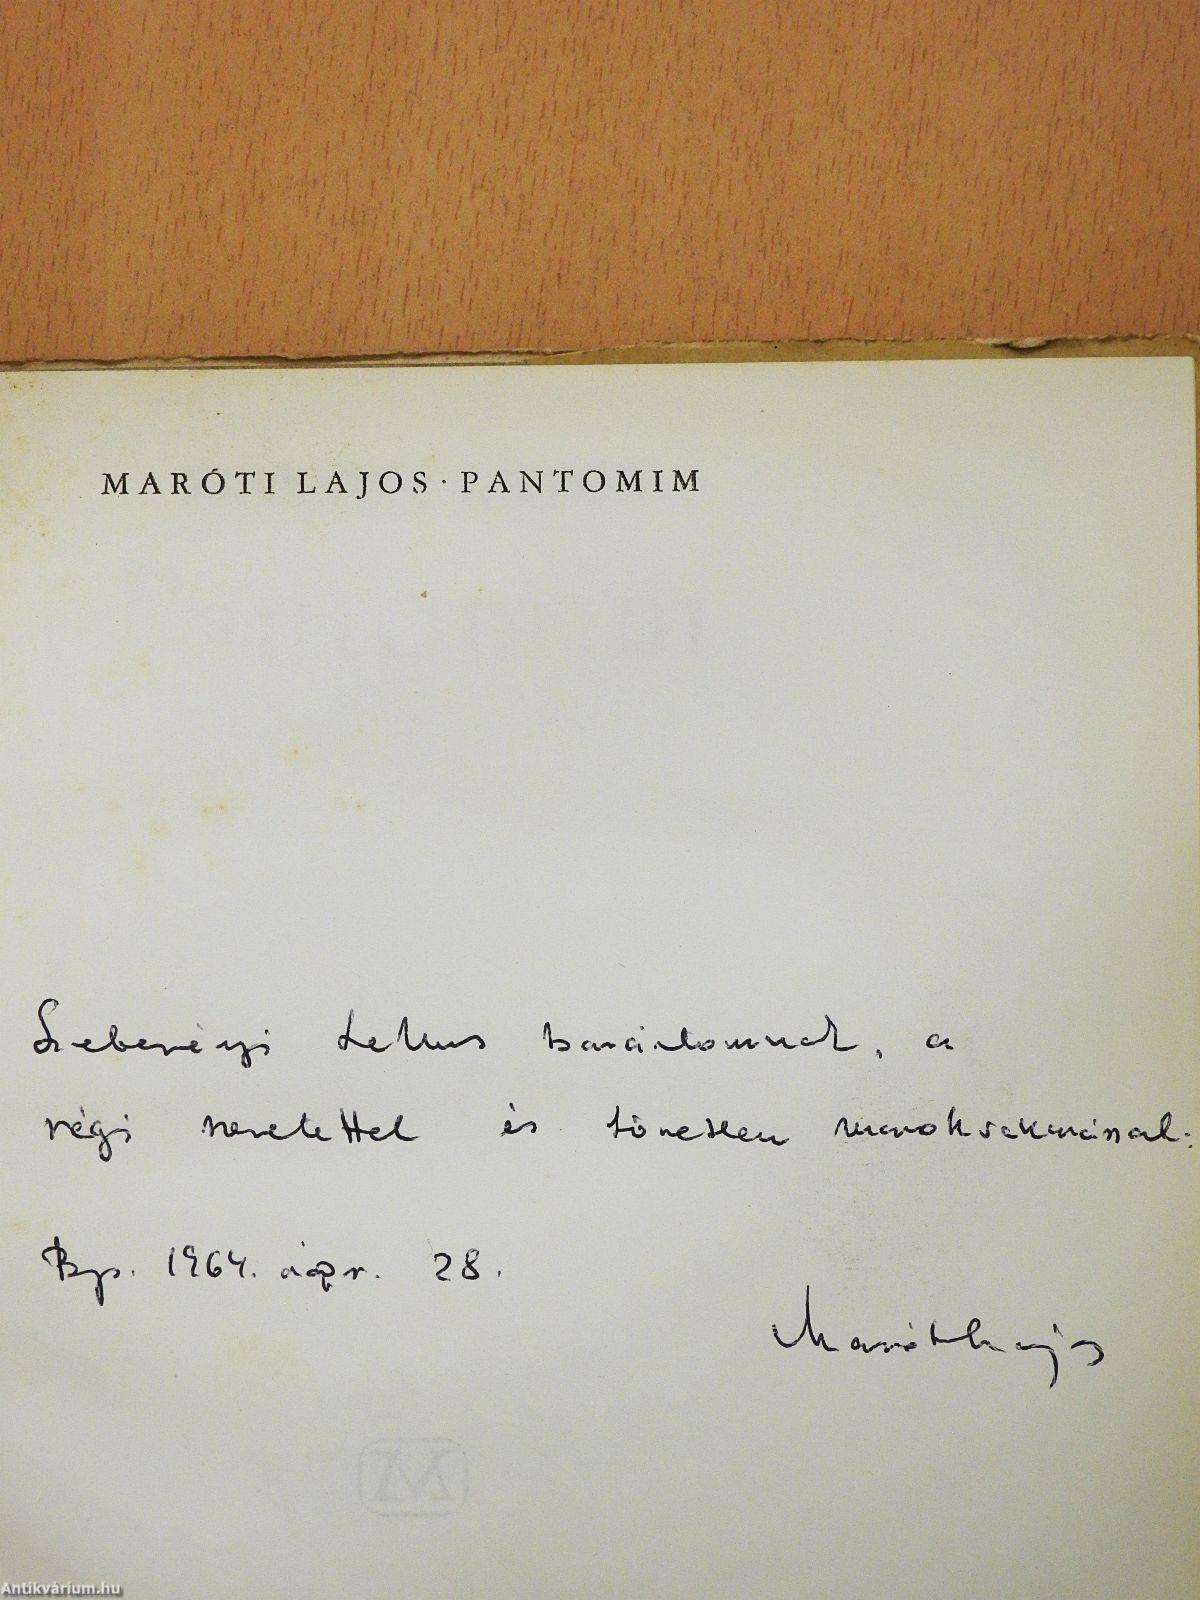 MARÓTI LAJOS · PANTOMIM
Szeberényi Lehus barátomnak, a
régi szeretettel és töretlen marokszakmással:
Bp. 1964. ápr. 28.
Maróti Lajos
M
Antikvárium.hu